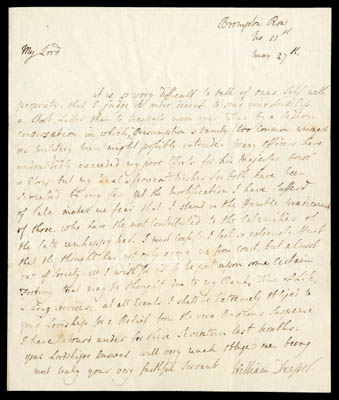 Brompton Row
No 11th
May 27th.
My Lord
It is so very difficult to talk of ones Self, with
propriety, that I judge it more decent to send your Lordship
a Short Letter than to trespass upon your Time by a tedious
conversation, in which Presumption & Vanity, too Common amongst
us Military Men might possibly intrude. Many officers have
undoubtedly exceeded my poor Efforts for his Majestys Honor
& Glory but my Zeal & fervent Wishes for both have been
exceeded by very few, yet the Mortification I have Suffered
of late makes me fear that I stand in the Humble
of those who have the most contributed to the Calamities of
the late unhappy War. I must confess I feel so extremely Hurt
that the thought has not only drove me from Court but almost
out of Society. all I wish for is to be put upon some Certain
Footing that may be thought due to my Rank, time of Life,
& Long Services, at all Events I shall be Extremely Obliged to
your Lordship for a Relief from the very Anxious Suspence
I have Labourd under for these Seventeen last Months.
your Lordships Answer will very much oblige me, being
most truly your very faithful Servant William Draper